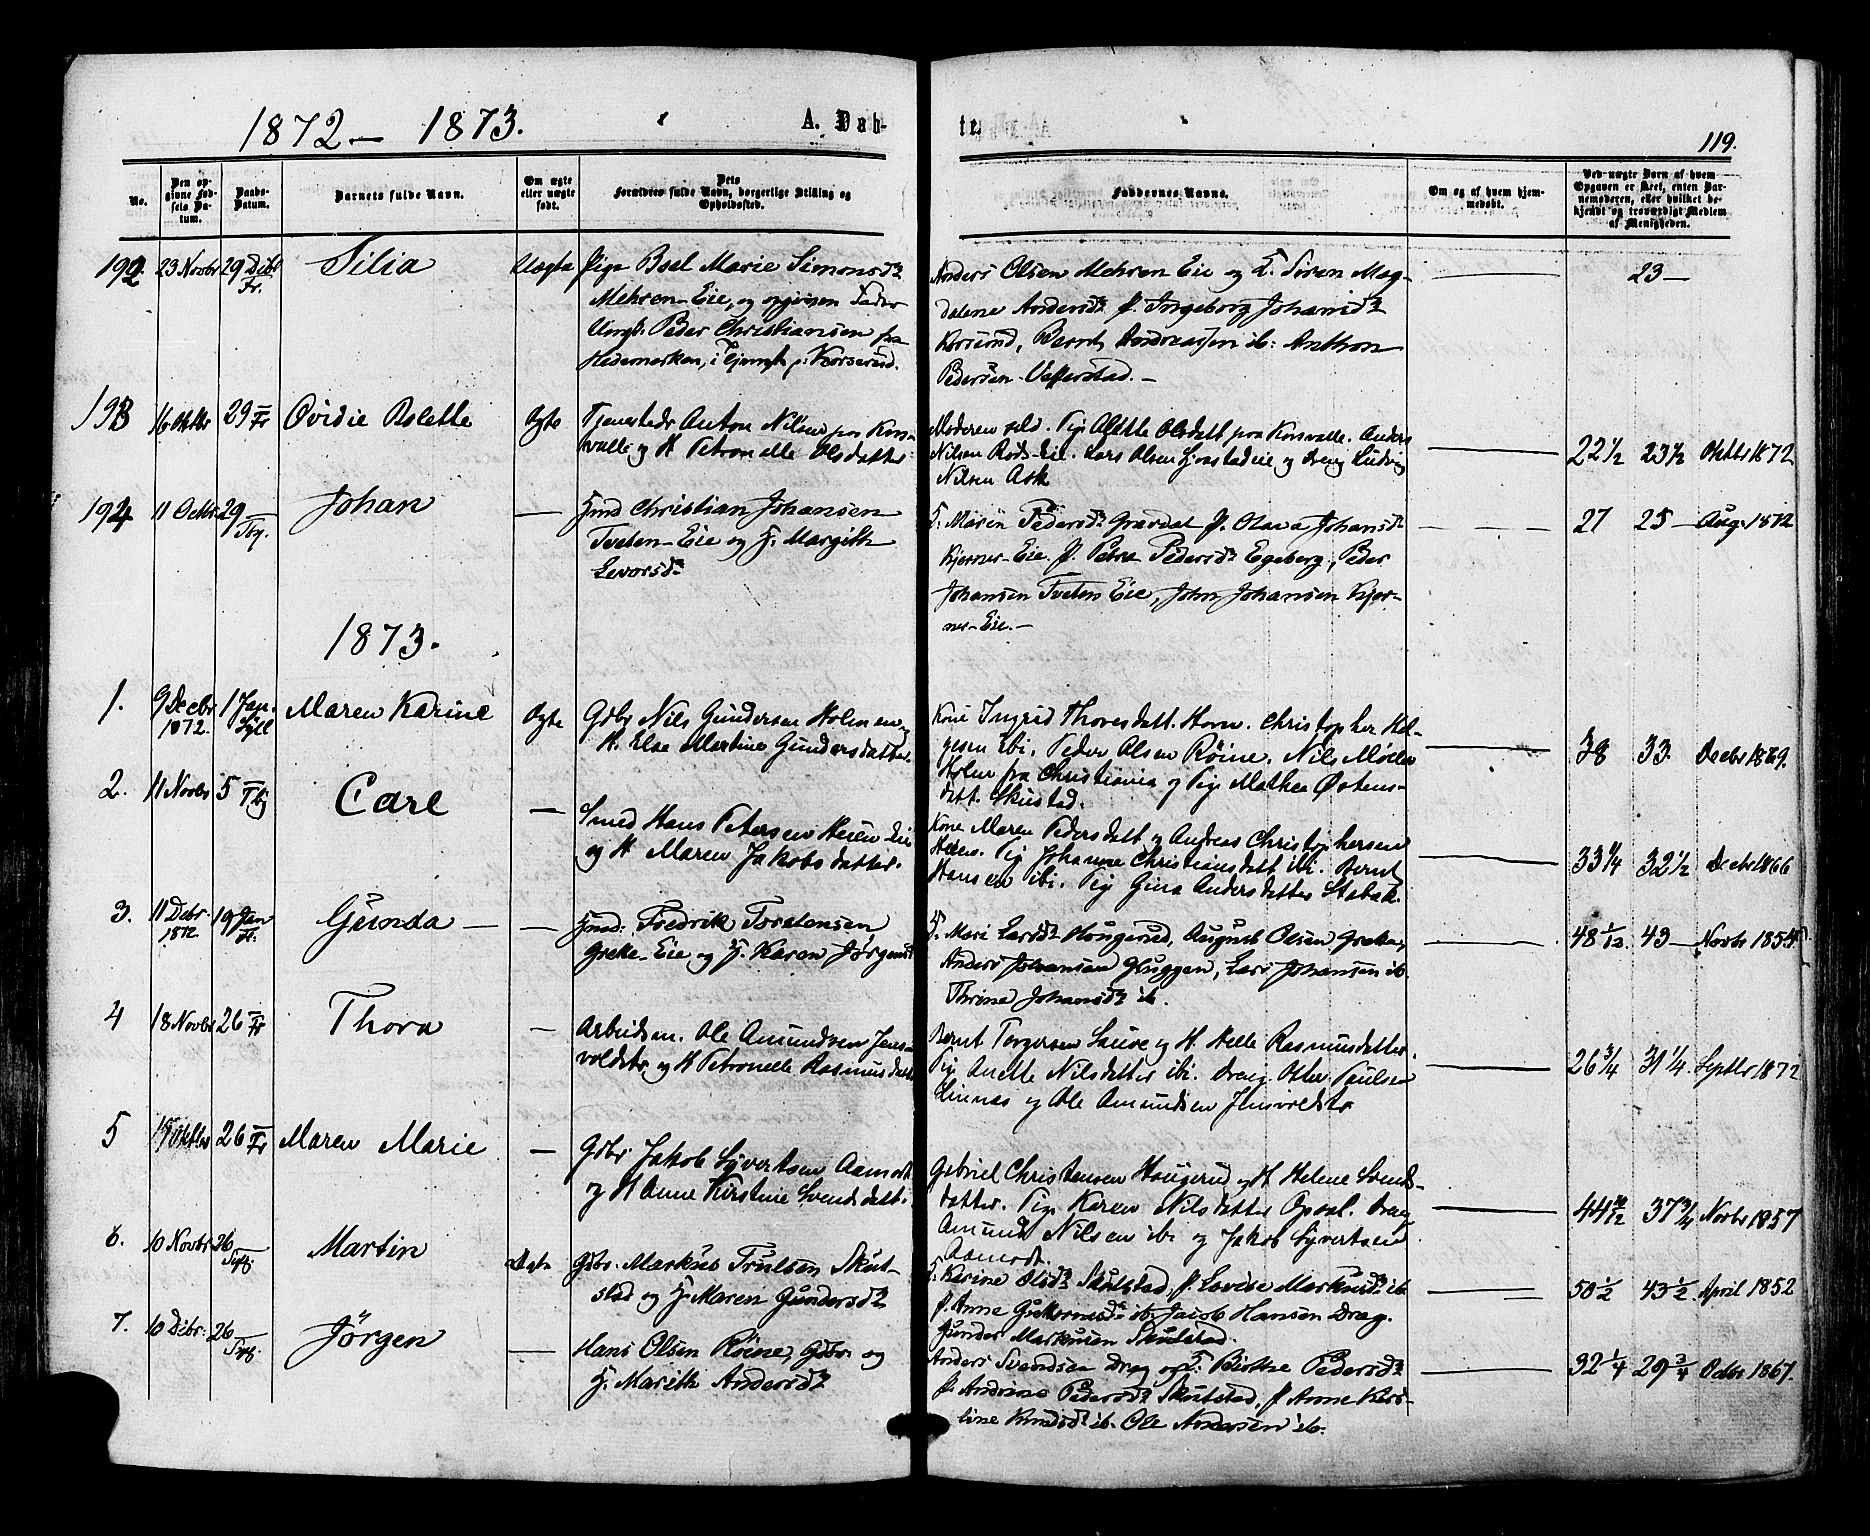 1872 - 1873.
A. Døb-
te.
119.
No.
Den op-
givne Fød-
sels Da-
tum.
Daabs-
Datum.
Barnets fulde Navn.
Om ægte
eller uægte
født.
Dets
Forældres fulde Navn, borgerlige Stilling og
Opholdssted.
Faddernes Navne.
Om og af hvem hjem-
medøbt.
Ved uægte Børn af hvem
Opgaven er skeet, enten Bar-
nemoderen, eller hvilket be-
kjendt og troværdigt Medlem
af Menigheden.
192. 23 Novbr 29 Dcbr Fr. Silia Uægte
Pige Boel Marie Simonsdr
Mehren-Eie, og opgiven Fader
Ungk: Peder Christiansen fra
Hedemarken, i Tjeneste p: Korserud.
Anders Olsen Mehren Eie og K. Søren Mag-
dalene Andersdr P. Ingeborg Johansdr
Korserud, Bernt Andreassen ib: Anthon
Pedersen Vefferstad. -
23 -
193 16 Oktbr 29 Fr Ovidie Rolette Ægte
Tjenestedr Anton Nilsen paa Kors-
valle og H Petronelle Olsdatter.
Moderen selv. Pig Alette Olsdatt paa Korsvalle. Anders
Nilsen Røds-Eie. Lars Olsen Gjorstadeie og Dreng Ludvig
Nilsen Ask
22 1/2 23 1/2 Oktbr 1872
194 11 Octbr 29 Johan -
Hmd Christian Johansen
Tveten-Eie og H. Margith
Levorsdr
K: Maren Pedersdr Gravdal P. Olava Johansdr
Kjerner-Eie. P. Petra Pedersdr Egeberg, Peder
Johansen Tveten Eie, John Johansen Kjer-
ner-Eie. -
27 25 - Aug. 1872
1873.
1. 9 Decbr 1872. 1 Jan. Maren Karine Ægte
Gdbr Nils Gundersen Holmen og
H. Else Martine Gundersdatter.
Kone Ingrid Thoresdatt. Horn. Christopher Hel-
gesen ibi. Peder Olsen Røine. Nils Møller
Holm fra Christiania og Pige Mathea Østens-
datt. Skustad.
38 33. Decbr 1869.
2. 11 Novbr 5 Carl -
Smed Hans Petersen Heien Eie
og H Maren Jakobsdatter.
Kone Maren Pedersdatt og Andreas Christophersen
Heien. Pig Johanne Christiansdatt ibi. Bernt
Hansen ibi. Pig Gina Andersdatter Stabæk.
33 1/4 32 1/2 Decbr 1866
3. 11 Dcbr: 1872. 19 Jan Fr: Gunda - -
Hmd: Fredrik Torstensen
Grøke-Eie og H. Karen Jørgensd
K. Mari Larsdr Hougerud, August Olsen Grøke,
Anders Johansen Gluggen, Lars Johansen ib.
Thrine Johansdr ib.
48 1/12. 43 - Novbr 1854
4 18 Novbr 26 Fr Thora -
Arbeidsm. Ole Amundsen Jens-
voldstr og H Petronelle Rasmusdatt
Bernt Torgersen Saue og H. Helle Rasmusdatter.
Pig Anette Nilsdatter ibi. Dreng Otter Paulsen
Linnæs og Ole Amundsen Jensvoldstr
26 3/4 31 1/4. Septbr 1872
5 19 Oktbr 26 Fr Maren Marie -
Gdbr Jakob Syvertsen Aamodt
og H Anne Kirstine Svendsdatt.
Gabriel Christensen Hougerud og H Helene Svends-
datter. Pige Karen Nilsdatter Opsal. Dreng
Amund Nilsen ibi og Jakob Syvertsen
Aamodt.
44 10/12 37 3/4 Novbr 1857
6. 10 Novbr 26 Martin Ægte
Gdbr. Markus Trulsen Skut-
stad og H. Maren Gundersdr
K: Karine Olsdr Skutstad, P. Lovise Markusdr ib.
P. Anne Guttormsdr ib. Jacob Hansen Drag.
Gunder Markusen Skutstad.
50 1/2 43 1/2 April 1852
7. 10 Dcbr: 26 Jørgen -
Hans Olsen Røine, Gdbr og
H. Marith Andersdr
Anders Svendsen Drag og K. Birthe Pedersdr
P. Andrine Pedersdr Skutstad, P. Anne Kirs-
tine Knudsdr ib. Ole Andersen ib.
32 1/4 29 3/4 Octbr 1867.